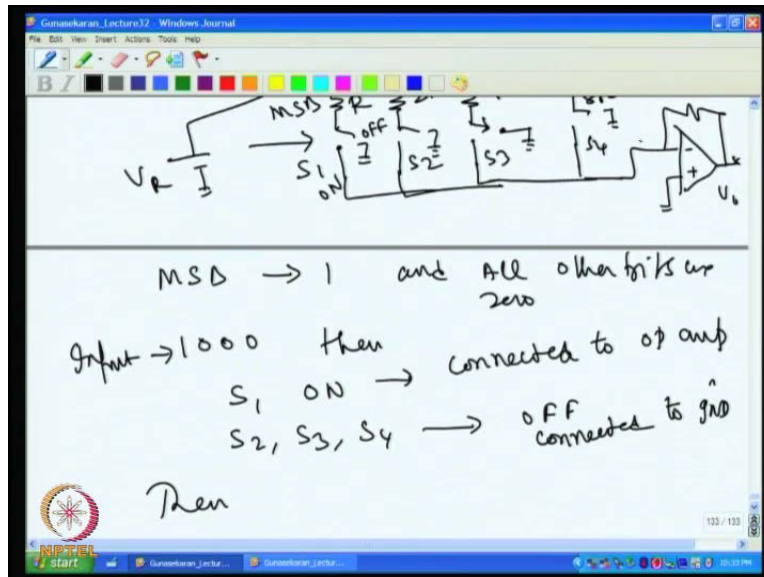 Gunasekaran_Lecture32 - Windows Journal
File Edit View Insert Actions Tools Help
B I
MSB R
OFF
VR S1 ON S2 S3 S4 - + V0
MSB → 1 and All other bits are
zero
Input → 1000 then
S1 ON → connected to op amp
S2, S3, S4 → OFF
connected to gnd
Then
133 / 133
NPTEL
start Gunasekaran_Lectur... Gunasekaran_Lectur... 10:33 PM